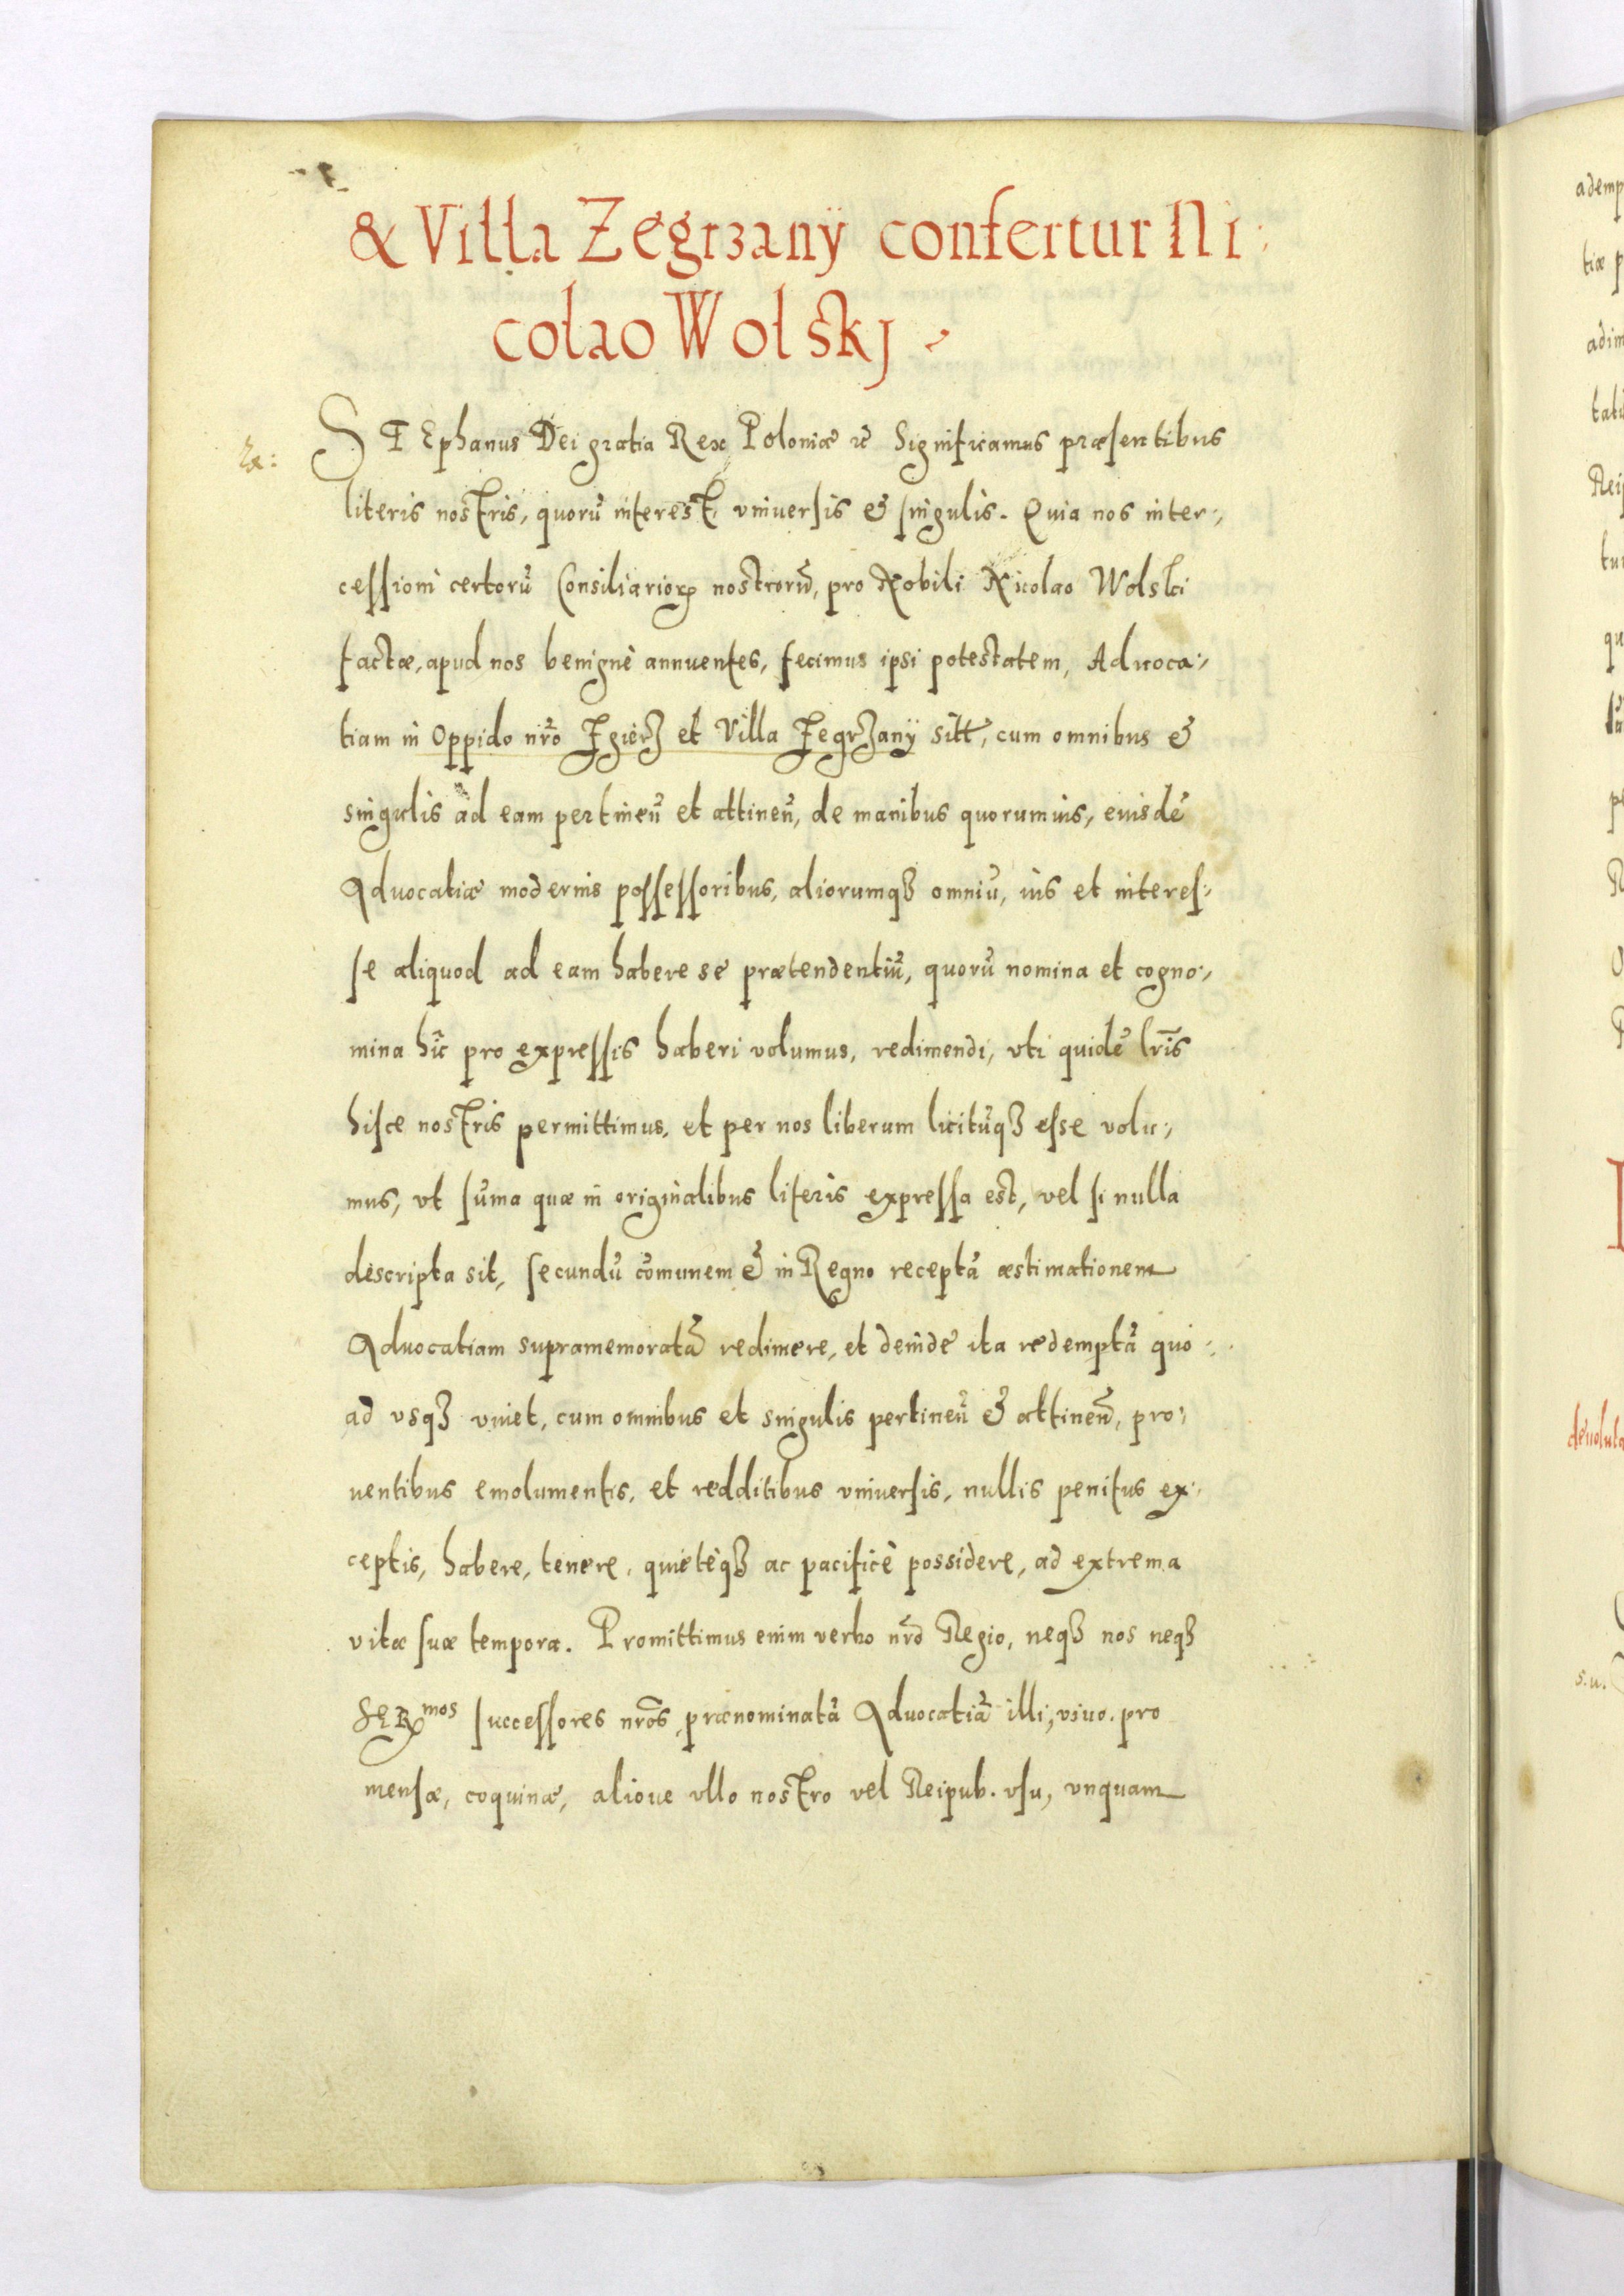 & Villa Zegrzanÿ confertur Ni:
colao Wolskj
STEphanus Dei gratia Rex Poloniæ &c Significamus præsentibus
Ex:
literis nostris, quorũ interest, vniuersis & singulis. Quia nos inter:,
cessioni certorũ Consiliarioꝝ nostrorũ, pro Nobili Nicolao Wolski
factæ, apud nos benignè annuentes, fecimus ipsi potestatem, Aduoca:,
tiam in Oppido nr̃o Zgierz et Villa Zegrzanÿ sitt̃, cum omnibus &
singulis ad eam pertineñ et attineñ, de manibus quorumuis, eiusdẽ
Aduocatiæ modernis possessoribus, aliorumqꝫ omniũ, ius et interes:,
se aliquod ad eam habere se prætendentiũ, quorũ nomina et cogno:,
mina hĩc pro expressis haberi volumus, redimendi, vti quidẽ lr̃is
hisce nostris permittimus, et per nos liberum licitũqꝫ esse volu:,
mus, vt sũma quæ in originalibus literis expressa est, vel si nulla
descripta sit, secundũ cõmunem & in Regno receptã æstimationem
Aduocatiam supramemoratã redimere, et deinde ita redemptã quo:,
ad vsqꝫ viuet, cum omnibus et singulis pertineñ & attineñ, pro:,
uentibus emolumentis, et redditibus vniuersis, nullis penitus ex:,
ceptis, habere, tenere, quietèqꝫ ac pacificè possidere, ad extrema
vitæ suæ tempora. Promittimus enim verbo nr̃o Regio, neqꝫ nos neqꝫ
SERmos successores nr̃os, prænominatã Aduocatiã illi, viuo. pro
mensæ, coquinæ, alioue vllo nostro vel Reipub. vsu, vnquam